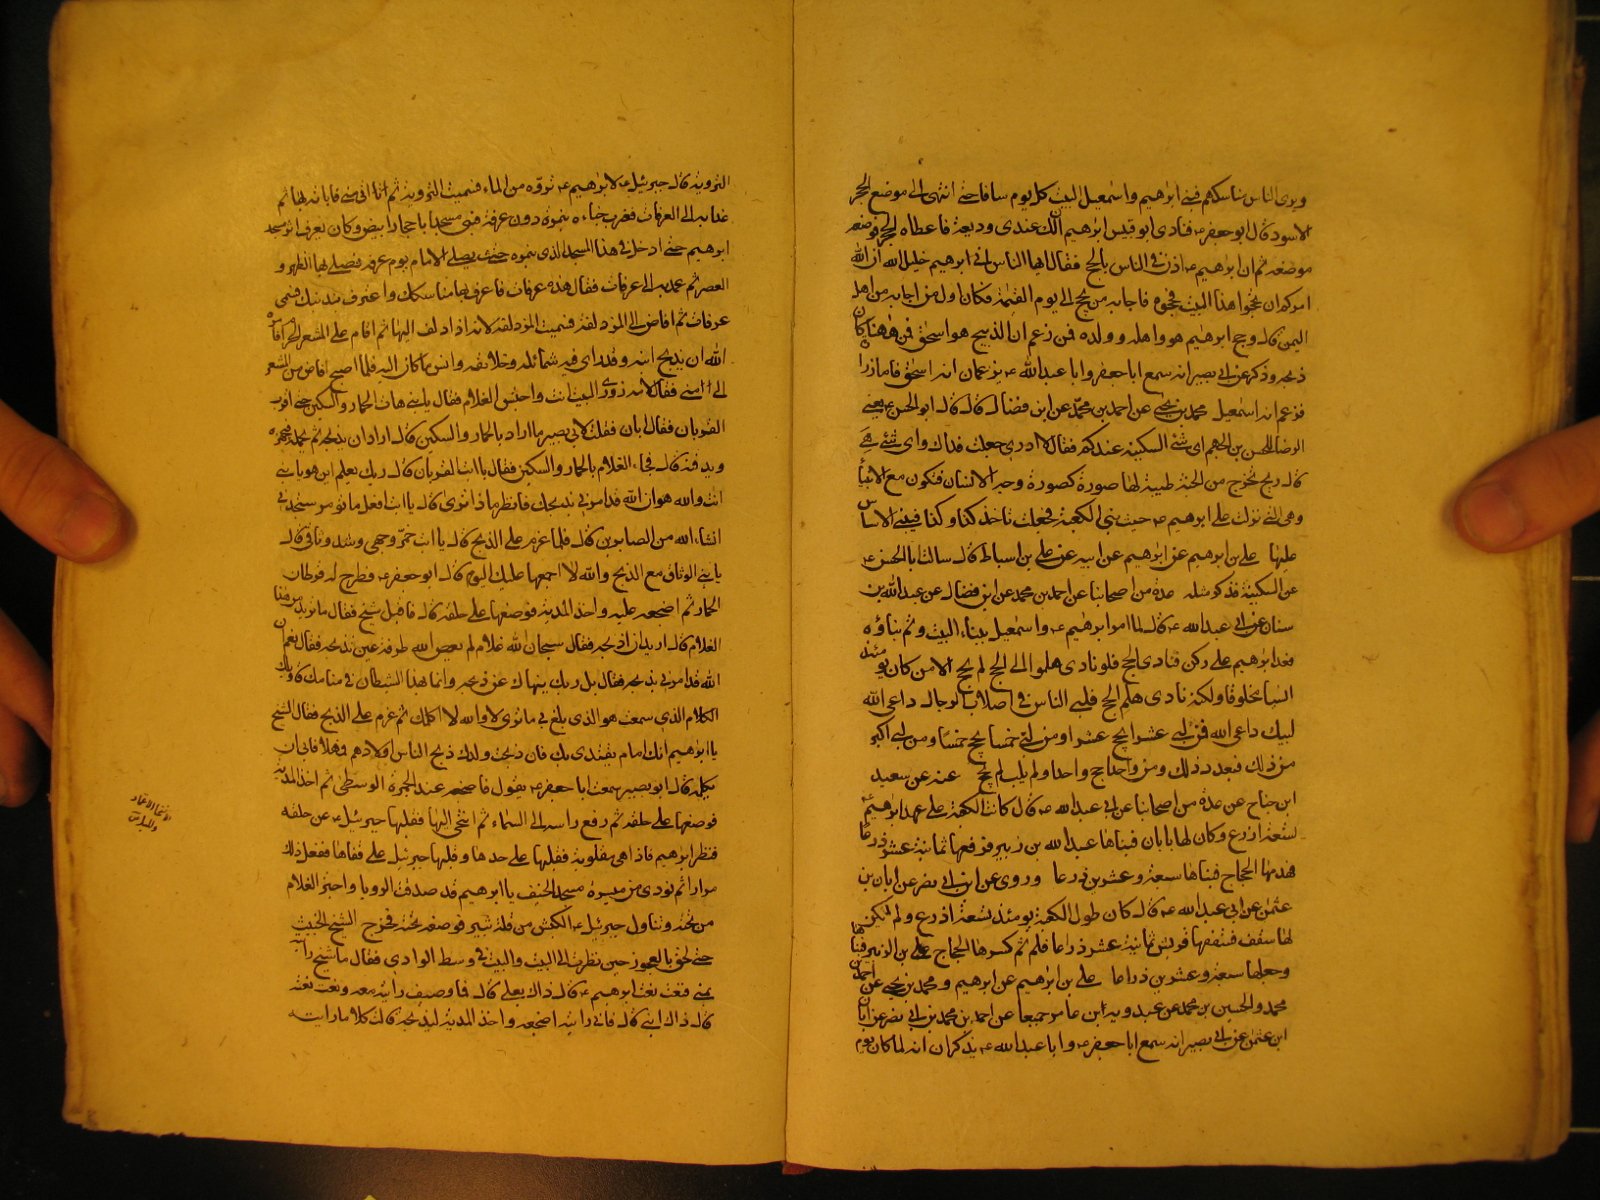 ويرى الناس مناسكهم فبنى ابرهيم واسمعيل البيت كل يوم سافا حتى انتهى الى موضع الحجر
الاسود قال ابو جعفر ع فنادى ابو قبيس ابرهيم ان لك عندى وديعة فاعطاه الحجر فوضعه
موضعه ثم ان ابرهيم ع اذن فى الناس بالحج فقال ايها الناس انى ابرهيم خليل الله ان الله
امركم ان تحجوا هذا البيت فحجوه فاجابه من يحج الى يوم القيمة فكان اول من اجابه من اهل
اليمن قال وحج ابرهيم هو واهله وولده فمن زعم ان الذبيح هو اسحق فمن ههنا كان
ذبحه وذكر عن ابى بصير انه سمع ابا جعفر وابا عبد الله ع يزعمان انه اسحق فاما زرارة
فزعم انه اسمعيل محمد بن يحيى عن احمد بن محمد عن ابن فضال قال قال ابو الحسن ع يعنى
الرضا للحسن بن الجهم اى شىء السكينة عندكم فقال لا ادرى جعلت فداك واى شىء هى
قال ريح تخرج من الجنة طيبة لها صورة كصورة وجه الانسان فتكون مع الانبياء
وهى التى نزلت على ابرهيم ع حيث بنى الكعبة فجعلت تاخذ كذا وكذا فبنى الاساس
عليها على بن ابرهيم عن ابرهيم عن ابيه عن على بن اسباط قال سالت ابا الحسن ع
عن السكينة فذكر مثله عدة من اصحابنا عن احمد بن محمد عن ابن فضال عن عبد الله بن
سنان عن ابى عبد الله ع قال لما امر ابرهيم ع واسمعيل ببناء البيت وتم بناؤه
قعد ابرهيم على ركن فنادى الحج فلو نادى هلموا الى الحج لم يحج الا من كان يومئذ
انسيا مخلوقا ولكنه نادى هلم الحج فلبى الناس فى اصلاب الرجال داعى الله
لبيك داعى الله فمن لبى عشرا يحج عشرا ومن لبى خمسا يحج خمسا ومن لبى اكثر
من ذلك فبعدد ذلك ومن واحدا حج واحدا ولم يلب لم يحج عنه عن سعيد
ابن جناح عن عدة من اصحابنا عن ابى عبد الله ع قال كانت الكعبة على عهد ابرهيم ع
تسعة اذرع وكان لها بابان فبناها عبد الله بن زبير فرفعها ثمانية عشر ذرعا
فهدمها الحجاج فبناها سبعة وعشرين ذرعا وروى عن ابن ابى نصر عن ابان بن
عثمن عن ابى عبد الله ع قال كان طول الكعبة يومئذ تسعة اذرع ولم تكن
لها سقف فسقفها قريش ثمانية عشر ذرعا فلم ثم كسرها الحجاج على بن الزبير فبناها
وجعلها سبعة وعشرين ذراعا على بن ابرهيم عن ابرهيم ومحمد بن يحيى عن احمد بن
محمد والحسين بن محمد عن عبدويه ابن عامر جميعا عن احمد بن محمد بن ابى نصر عن ابان
ابن عثمن عن ابى بصير انه سمع ابا جعفر ع وابا عبد الله ع يذكران انه لما كان يوم
التروية قال جبرئيل ع لابرهيم ع تروه من الماء فسميت التروية ثم اتى منى فاباته بها ثم
غدا به الى العرفات فضرب خباءه بنمرة دون عرفة فبنى مسجدا باحجار ابيض وكان يعرف اثر مسجد
ابرهيم حتى ادخل فى هذا المسجد الذى بنمره حيث يصلى الامام يوم عرفه فصلى بها الظهر و
العصر ثم عمد به الى عرفات فقال هذه عرفات فاعرف بها مناسكك واعترف بذنبك فسمى
عرفات ثم افاض الى المزدلفة فسميت المزدلفة لانه ازدلف اليها ثم اقام على المشعر الحرام فامره
الله ان يذبح ابنه وقد راى فيه شمائله وخلائقه وانس ما كان اليه فلما اصبح افاض من المشعر
الى منى فقال لامه زورى البيت انت واحتبس الغلام فقال يا بنى هات الحمار والسكين حتى اقرب
القربان فقال ابان فقلت لابى بصير ما اراد بالحمار والسكين قال اراد ان يذبحه ثم يحمله فيجهزه
ويدفنه قال فجاء الغلام بالحمار والسكين فقال يا ابت القربان قال ربك يعلم اين هو يا بنى
انت والله هو ان الله قد امرنى بذبحك فانظر ماذا ترى قال يا ابت افعل ما تؤمر ستجدنى
انشاء الله من الصابرين قال فلما عزم على الذبح قال يا ابت خمر وجهى وشد وثاقى قال
يا بنى الوثاق مع الذبح والله لا اجمعها عليك اليوم قال ابو جعفر ع فطرح له قرطان
الحمار ثم اضجعه عليه واخذ المدية فوضعها على حلقه قال فاقبل شيخ فقال ما تريد من هذا
الغلام قال اريد ان اذبحه فقال سبحان الله غلام لم يعص الله طرفة عين تذبحه فقال نعم ان
الله قد امرنى بذبحه فقال بل ربك ينهاك عن ذبحه وانما هذا الشيطان فى منامك قال ويلك
الكلام الذى سمعت هو الذى بلغ بى ما ترى لا والله لا اكلمك ثم عزم على الذبح فقال الشيخ
يا ابرهيم انك امام يقتدى بك فان ذبحت ولدك ذبح الناس اولادهم فمهلا فابى ان
يكلمه قال ابو بصير سمعت ابا جعفر ع يقول فاضجعه عند الجمرة الوسطى ثم اخذ المدية
فوضعها على حلقه ثم رفع راسه الى السماء ثم انتحى اليها فقلبها جبرئيل ع عن حلقه
فنظر ابرهيم فاذا هى مقلوبة فقلبها على حدها وقلبها جبرئيل على قفاها ففعل ذلك
مرارا ثم نودى من ميسرة مسجد الخيف يا ابرهيم قد صدقت الرؤيا واجتر الغلام
من تحته وتناول جبرئيل ع الكبش من قلة ثبير فوضعه تحته فخرج الشيخ الخبيث
حتى لحق بالعجوز حين نظرت الى البيت والبيت فى وسط الوادى فقال ما شيخ رايته
بمنى فنعت نعت ابرهيم ع قالت ذاك بعلى قال فما وصيف رايته معه ونعت نعته
قال ذاك ابنى قال فانى رايته اضجعه واخذ المدية ليذبحه قالت كلا ما رايت